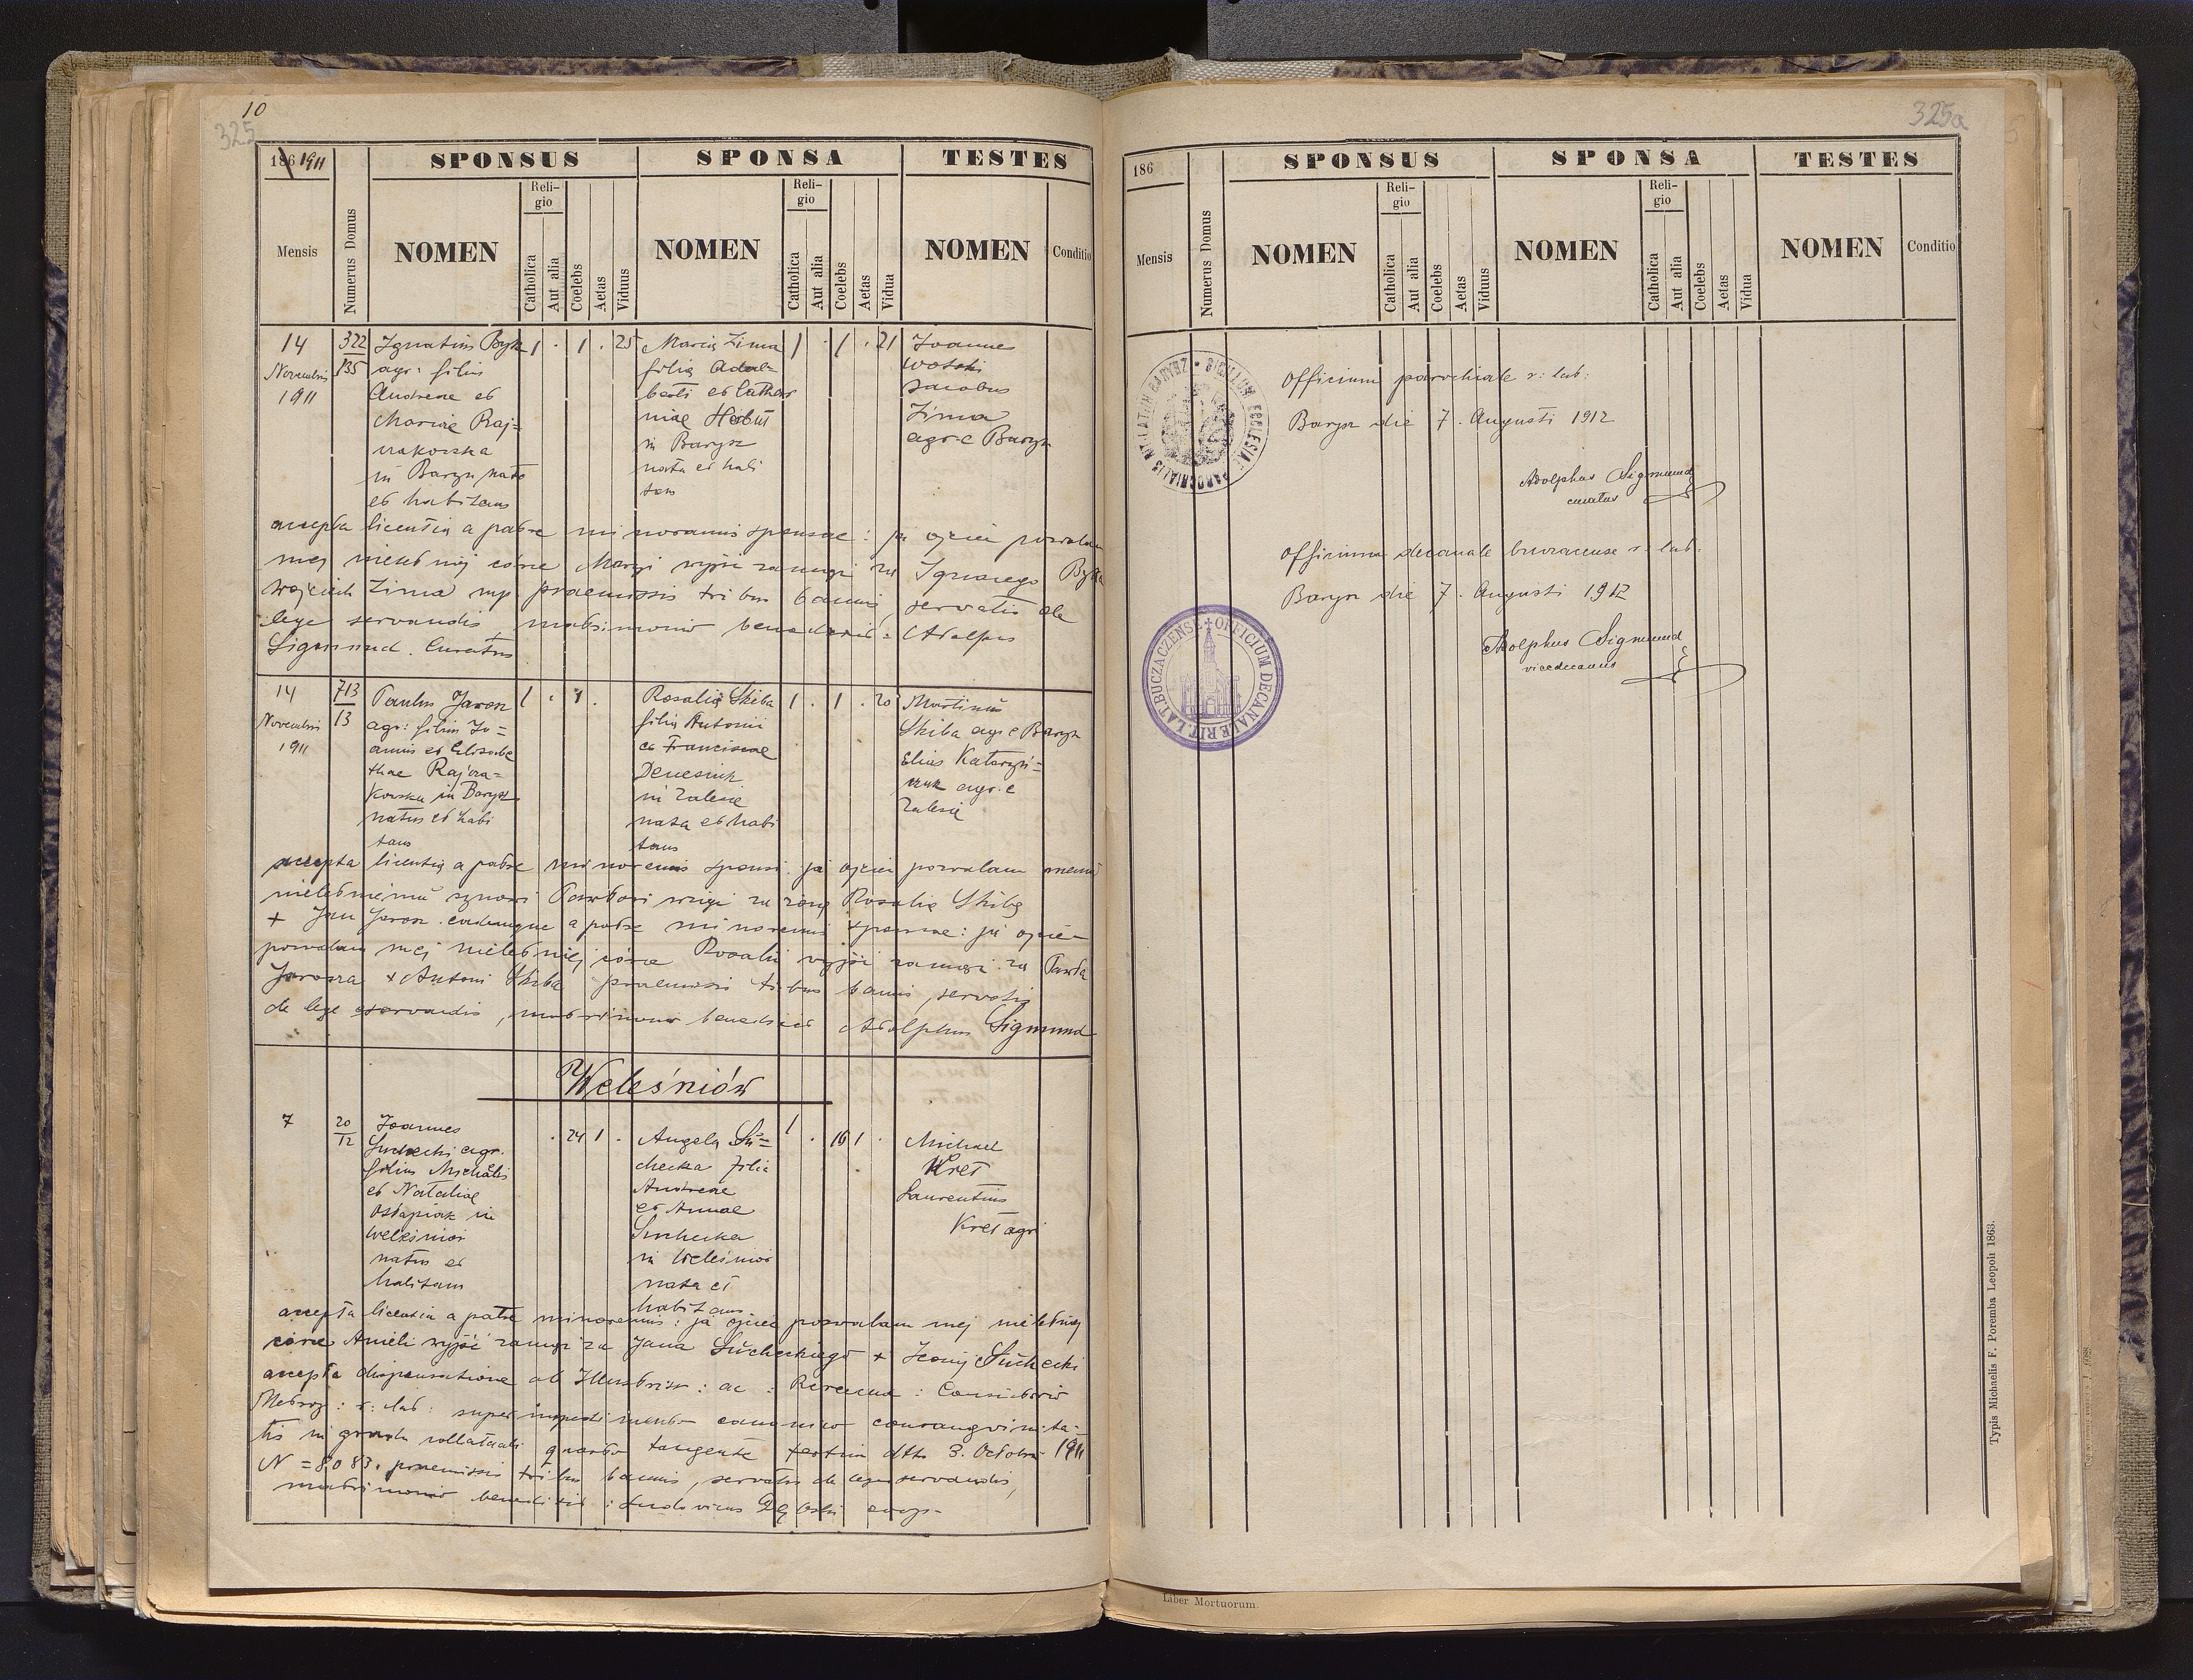 10
325
186 1911
SPONSUS
SPONSA
TESTES
Mensis
Numerus Domus
NOMEN
Reli-
gio
Catholica
Aut alia
Coelebs
Aetas
Viduus
NOMEN
Reli-
gio
Catholica
Aut alia
Coelebs
Aetas
Vidua
NOMEN
Conditio
14
Novembris
1911
322
135
Ignatius Byk
agr: filius
Andreae et
Mariae Raj=
czakowska
in Barysz nato
et habitans
1 . 1 . 25
Maria Zima
filia Adal-
berti et Catha
niae Hebut
in Barysz
nata et habi
tans
1 . 1 . 21
Joannes
Wotski
Jacobus
Zima
agr e Barysz
accepta licentia a patre minorennis sponsae: ja ojciec pozwalam
mej nieletniej córce Maryi wyjść zamąż za Ignacego Byka
Wojciech Zima mp. praemissis tribus bannis, servatis de
lege servandis matrimonio benedixit: Adolfus
Sigmund. Curatus
14
Novembris
1911
713
13
Paulus Jarosz
agr: filius Jo=
annis et Elisabe
thae Rajcza=
kowska in Barysz
natus et habi
tans
1 . 1 .
Rosalia Skiba
filia Antonii
et Franciscae
Denesiuk
in Zalesie
nata et habi
tans
1 . 1 . 20
Martinus
Skiba agr e Barysz
Elias Katarzyń=
czuk agr. e
Zalesie
accepta licentia a patre minorennis sponsi: ja ojciec pozwalam memu
nieletniemu synowi Pawłowi wziąć za żonę Rosalię Skibę
+ Jan Jarosz. eademque a patre minorennis sponsae: ja ojciec
pozwalam mej nieletniej córce Rosalii wyjść zamąż za Pawła
Jarosza + Antoni Skiba praemissis tribus bannis, servatis
de lege servandis, matrimonio benedixit Adolphus Sigmund
Weleśniów
7
20
12
Joannes
Suchecki agr.
filius Michaelis
et Nataliae
Ostapiak in
Weleśniów
natus et
habitans
. 24 1 .
Angela Su=
checka filia
Andreae
et Annae
Suchecka
in Weleśniów
nata et
habitans
1 . 16 1 .
Michael
Kret
Laurentius
Kret agr
accepta licentia a patre minorennis: ja ojciec pozwalam mej nieletniej
córce Anieli wyjść zamąż za Jana Sucheckiego + Suchecki
accepta dispensatione ab Illustriss: ac: Reverend: Consistorio
Metrop: r: lat: super impedimento canonico consanguinita=
tis in gradu collaterali quarto tangente tertium dtto 3. Octobris 1911
N = 8083. praemissis tribus bannis, servatis de lege servandis,
matrimonio benedixit: Ludovicus
325a
186
SPONSUS
SPONSA
TESTES
Mensis
Numerus Domus
NOMEN
Reli-
gio
Catholica
Aut alia
Coelebs
Aetas
Viduus
NOMEN
Reli-
gio
Catholica
Aut alia
Coelebs
Aetas
Vidua
NOMEN
Conditio
Officium parochiale r: lat:
Barysz die 7. Augusti 1912
Adolphus Sigmund
curatus
SIGILLUM ECCLESIAE PAROCHIALIS RIT. LAT. IN BARYSZ
Officium decanale buczacense r: lat.
Barysz die 7. Augusti 1912
Adolphus Sigmund
vicedecanus
OFFICIUM DECANALE RIT. LAT. BUCZACZENSE
Typis Michaelis F. Poremba Leopoli 1863.
Liber Mortuorum.